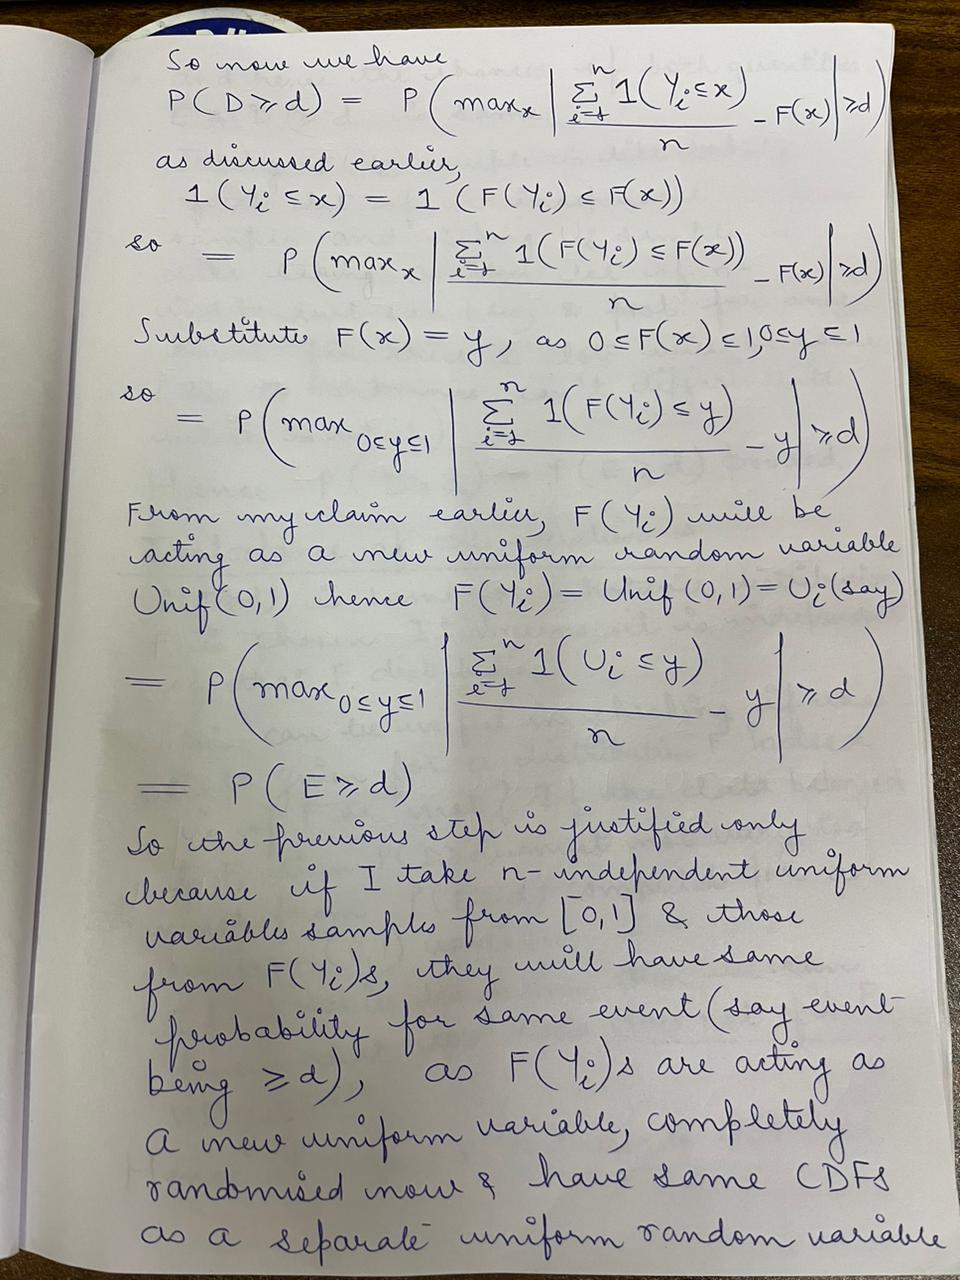 So now we have
P(D ≥ d) = P(max_x | Σ_{i=1}^n 1(Y_i ≤ x) / n - F(x) | ≥ d)
as discussed earlier,
1(Y_i ≤ x) = 1(F(Y_i) ≤ F(x))
so = P(max_x | Σ_{i=1}^n 1(F(Y_i) ≤ F(x)) / n - F(x) | ≥ d)
Substitute F(x) = y, as 0 ≤ F(x) ≤ 1, 0 ≤ y ≤ 1
so = P(max_{0≤y≤1} | Σ_{i=1}^n 1(F(Y_i) ≤ y) / n - y | ≥ d)
From my claim earlier, F(Y_i) will be
acting as a new uniform random variable
Unif(0,1) hence F(Y_i) = Unif(0,1) = U_i (say)
= P(max_{0≤y≤1} | Σ_{i=1}^n 1(U_i ≤ y) / n - y | ≥ d)
= P(E ≥ d)
So the previous step is justified only
because if I take n-independent uniform
variables samples from [0,1] & those
from F(Y_i)s, they will have same
probability for same event (say event
being ≥ d), as F(Y_i)s are acting as
a new uniform variable, completely
randomised now & have same CDFs
as a separate uniform random variable